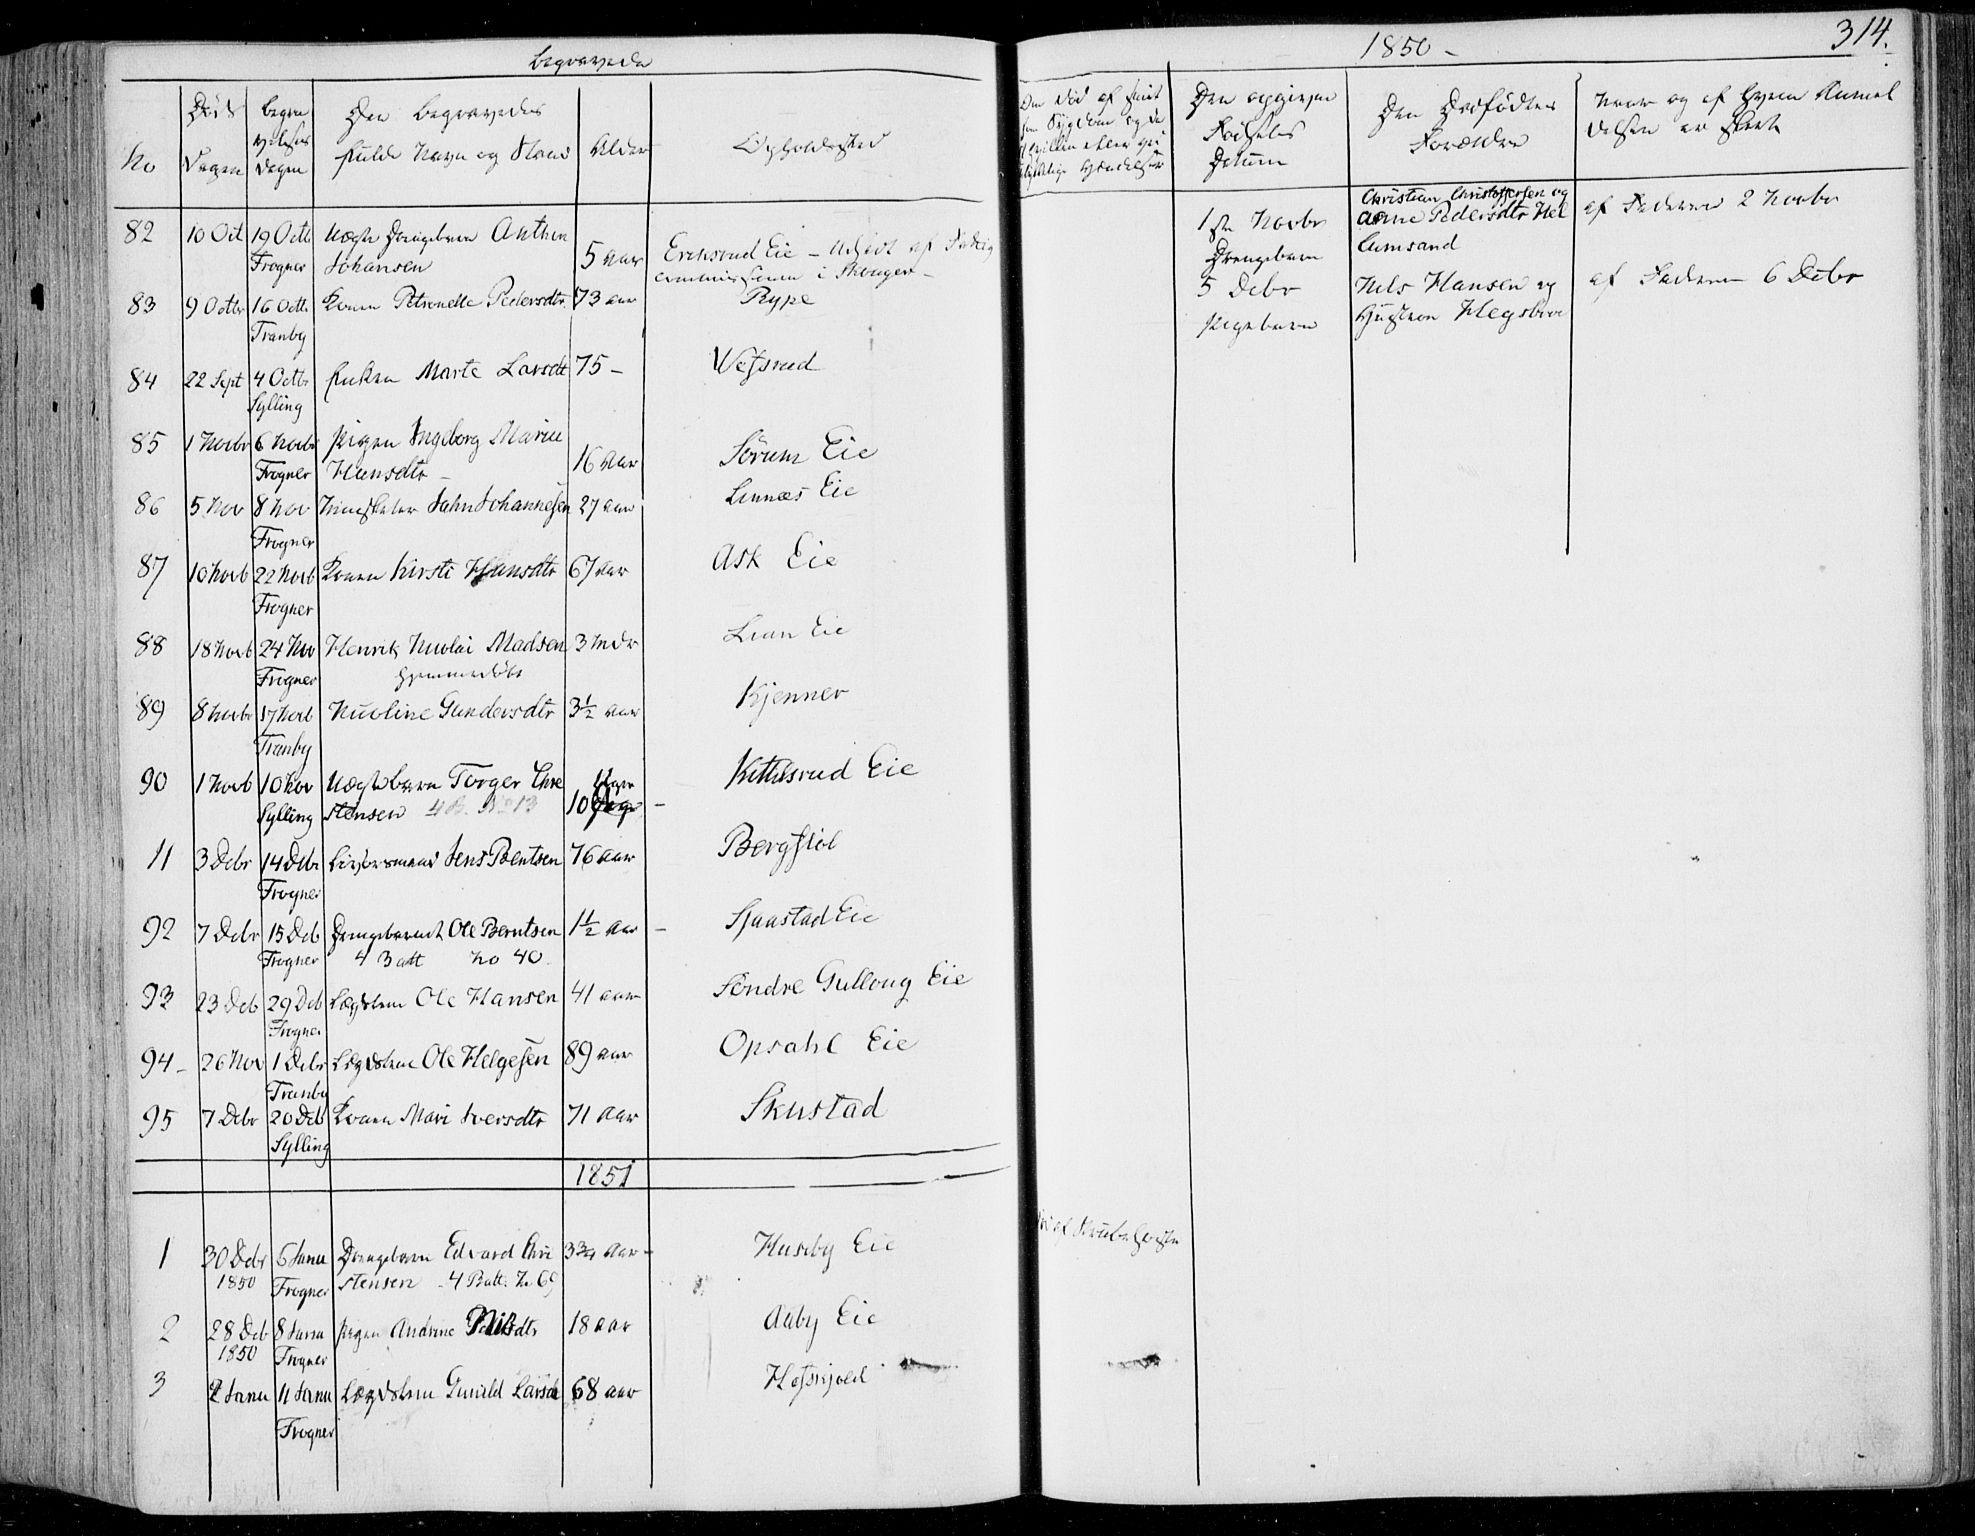 Begravede
No
Døds Dagen
Begravelses Dagen
Den Begravedes fulde Navn og Stand
Alder
Opholdssted
82 10 Oct 19 Octb Frogner Uægte Drengebarn Anthon
Johansen 5 Aar Eriksrud Eie – udsat af Fattig
commissionen i Skouger –
83 9 Octbr 16 Octb Konen Petronelle Pedersdtr 73 aar Rype
Tranby
84 22 Sept 4 Octbr Enken Marte Larsdt 75 – Vefsrud
Sylling
85 1 Novbr 6 Novbr Pigen Ingeborg Marie
Frogner Hansdtr – 16 Aar Sørum Eie
86 5 Nov 8 Nov John Johannesen 27 aar Linnæs Eie
Frogner
87 10 Novb 22 Novb Konen Kirsti Hansdtr 67 Aar Ask Eie
Frogner
88 18 Novb 24 Nov Henrik Nicolai Madsen 3 Mdr Lian Eie
Frogner hjemmedøbt
89 8 Novbr 17 Novb Nicoline Gundersdtr 3½ Aar Kjenner
Tranby
90 1 Novb 10 Nov Uægte barn Torger Chri Uger Kittilsrud Eie
Sylling stensen 4 B. No 13 10
11 3 Debr 14 Debr Jens Bentsen 76 Aar Bergstøl
Frogner
92 7 Debr 15 Deb Drengebarnet Ole Berntsen 1½ Aar – Sjaastad Eie
Frogner 4 Batt No 40.
93 23 Deb 29 Deb Lægdslem Ole Hansen 41 aar Søndre Gullaug Eie
Frogner
94 – 26 Nov 1 Debr Lægdslem Ole Helgesen 89 aar Opsahl Eie
Tranby
95 7 Debr 20 Deb Konen Mari Iversdtr 71 Aar Skustad
Sylling
1851
1 30 Debr 6 Janu Drengebarn Edvard Chri 3¾ Aar – Huseby Eie
1850 Frogner stensen – 4 Batt. No 69
2 28 Deb 8 Janu Pigen Andrine 18 Aar Aaby Eie
1850 Frogner
3 2 Janu 11 Janu Lægdslem Gunild Larsd 68 aar Hofskjold
Frogner
1850 –
314.
Den opgivne Fødsels Datum
Den Dødfødtes Forældre
Hvor og af Hvem Anmeldelsen er skeet
1ste Novbr Christian Christoffersen og
Drengebarn Anne Pedersdtr Hel
lumsand af Faderen 2 Novbr
5 Debr Nils Hansen og af Faderen – 6 Debr
Pigebarn Hustru Hegsbroe
af Strubehoste